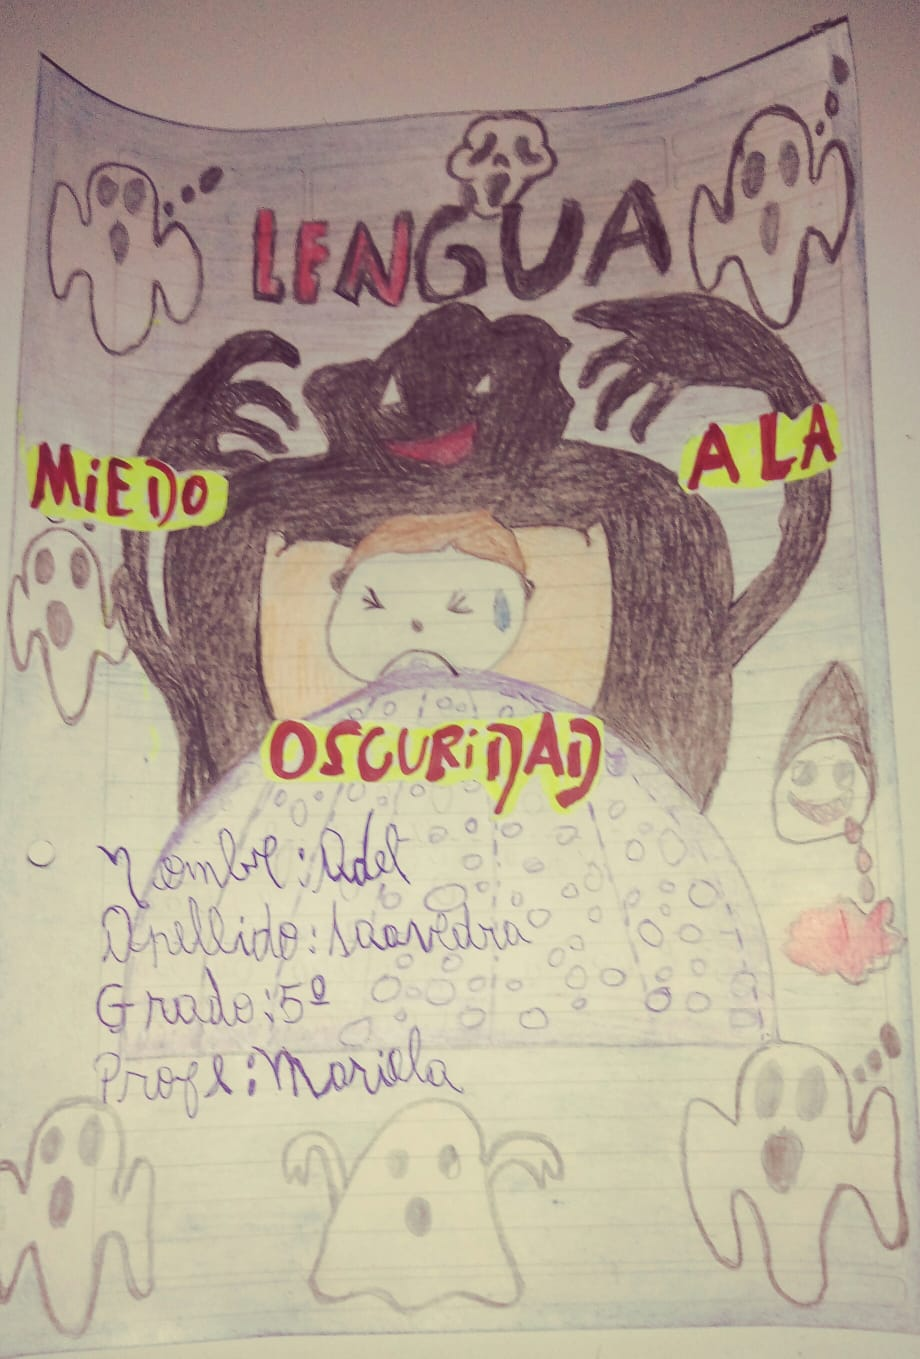 LENGUA
MiEDO
A LA
OSCURiDAD
Nombre: Adel
Apellido: saavedra
Grado: 5º
Profe: Mariela